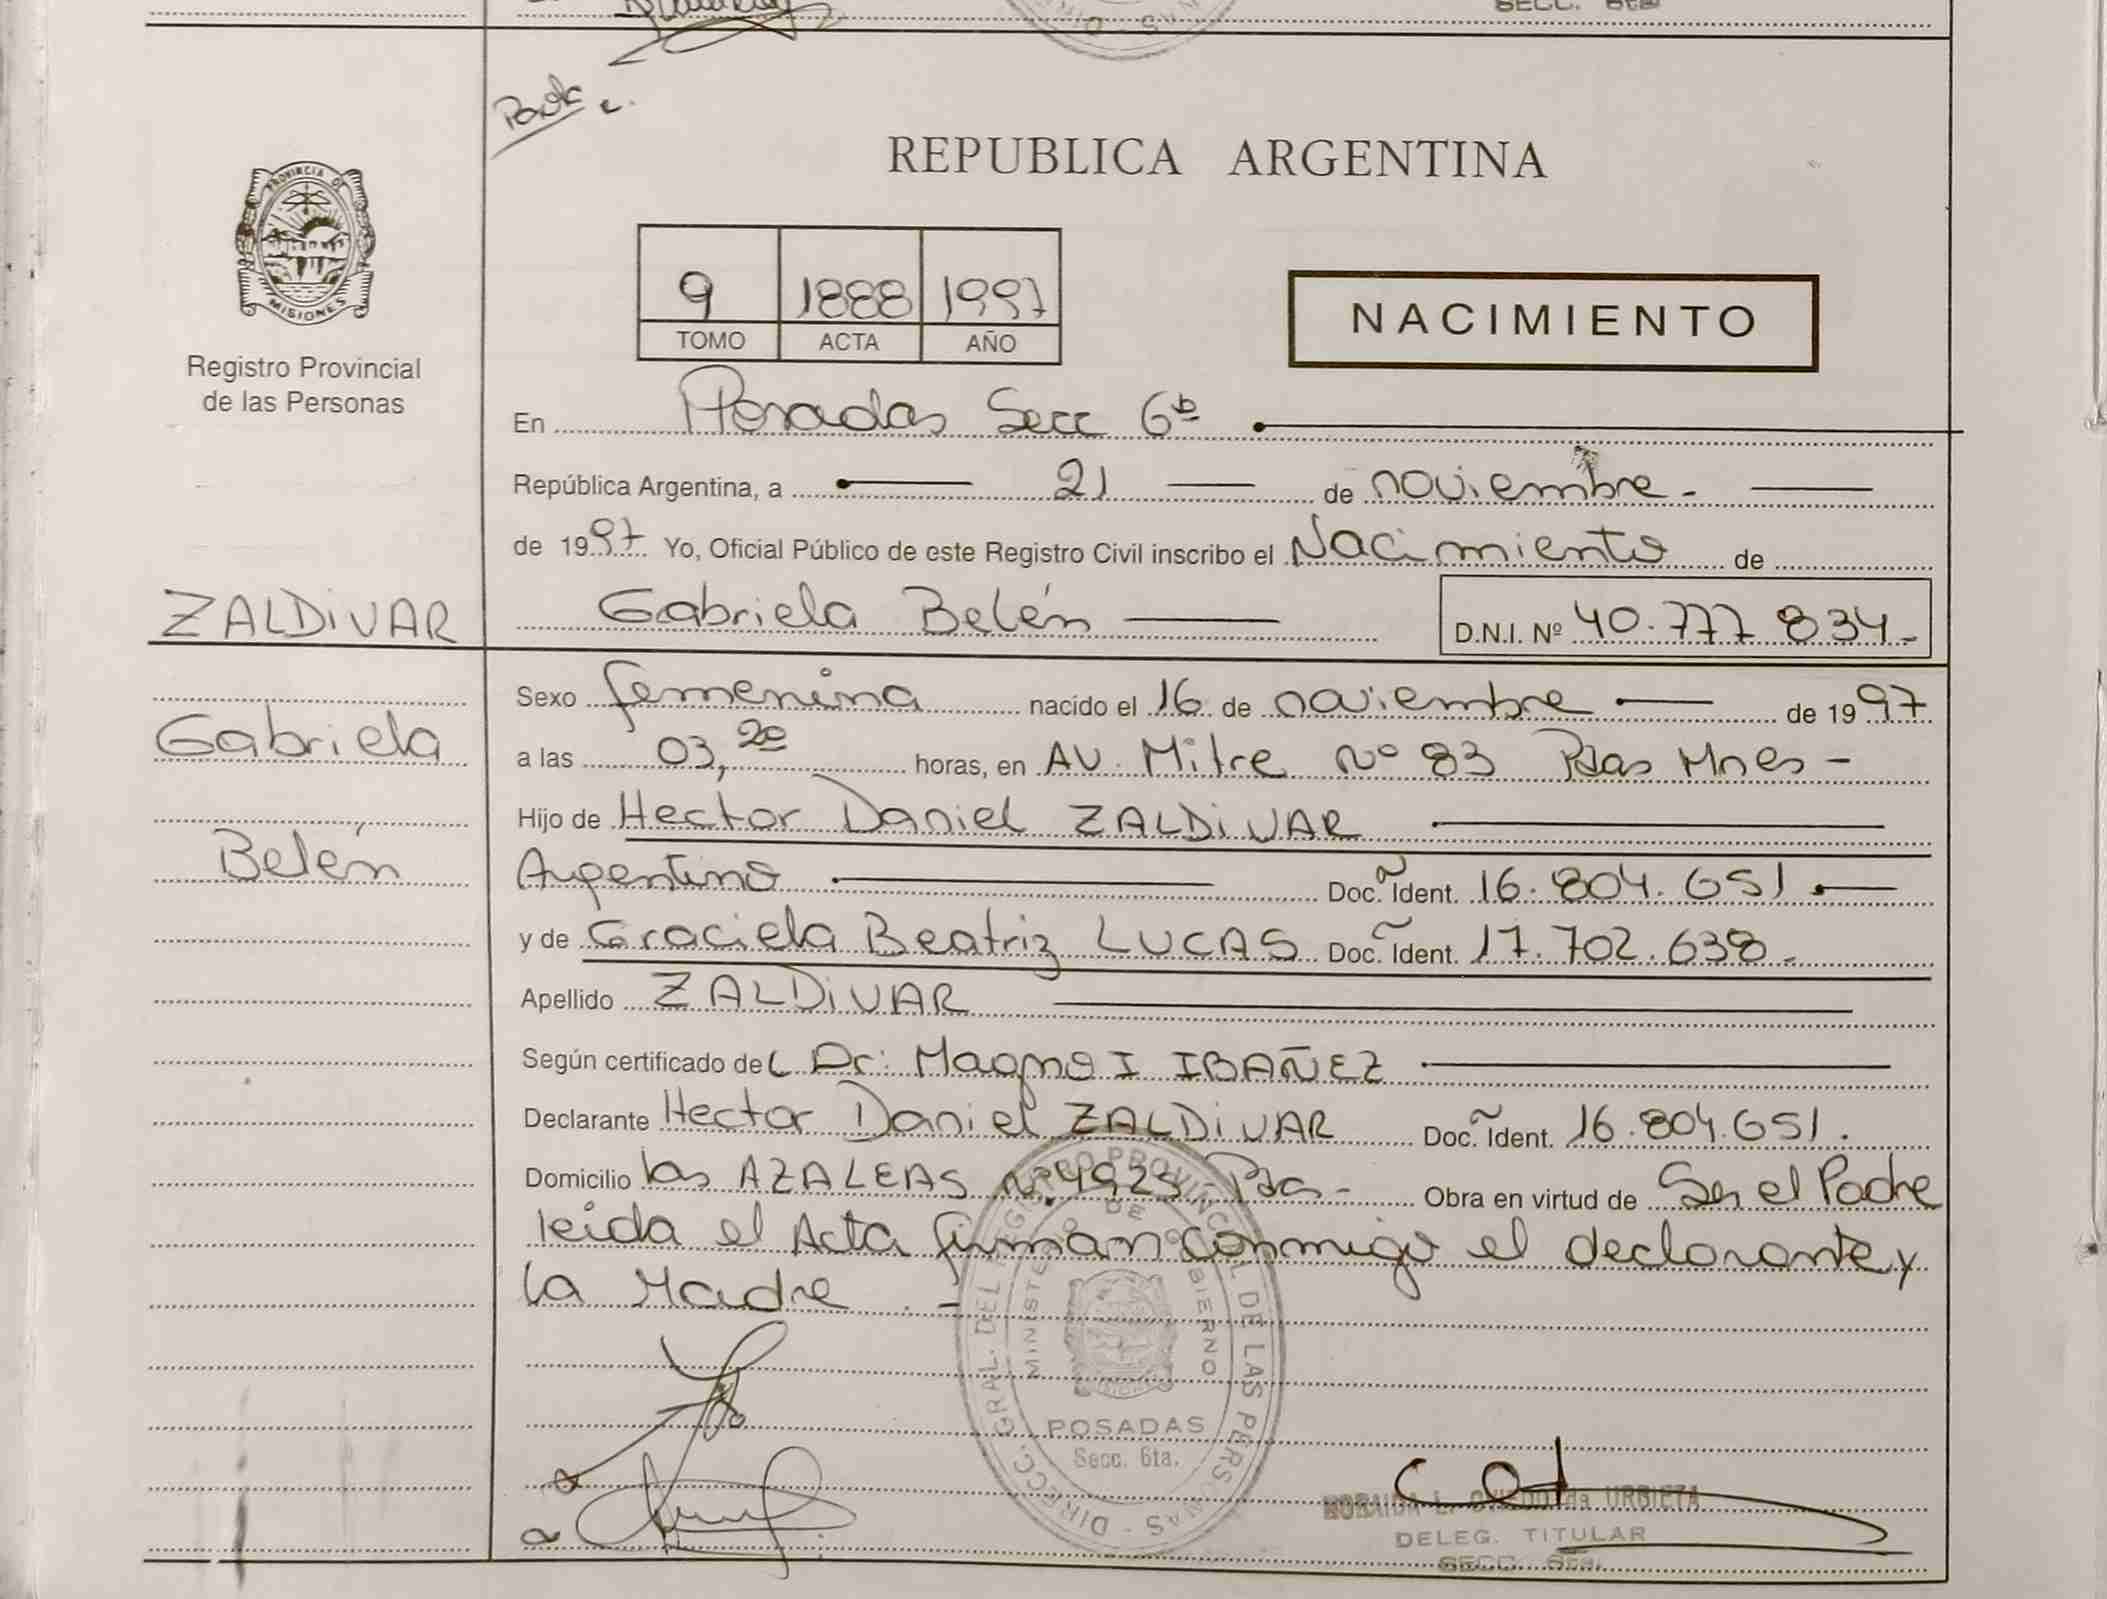 SECC. 6ta
REPUBLICA ARGENTINA
PROVINCIA DE
MISIONES
Registro Provincial
de las Personas
9 1888 1997
TOMO ACTA AÑO
NACIMIENTO
En Posadas Secc 6ta
República Argentina, a 21 de noviembre.
de 1997 Yo, Oficial Público de este Registro Civil inscribo el Nacimiento de
ZALDIVAR
Gabriela Belén D.N.I. Nº 40.777 834.
Sexo femenina nacido el 16 de noviembre de 1997
Gabriela
a las 03,20 horas, en AV. Mitre Nº 83 Pdas Mnes -
Hijo de Hector Daniel ZALDIVAR
Belén
Argentino Doc. Ident. 16.804.651
y de Graciela Beatriz LUCAS Doc. Ident. 17.702.638.
Apellido ZALDIVAR
Según certificado del Dr: Magno I IBAÑEZ
Declarante Hector Daniel ZALDIVAR Doc. Ident. 16.804.651.
Domicilio las AZALEAS Nº 4923 - Pdas - Obra en virtud de Ser el Padre
leida el Acta firman conmigo el declarante y
la Madre . -
DIRECC. GRAL. DEL REGISTRO PROVINCIAL DE LAS PERSONAS
MINISTERIO DE GOBIERNO
POSADAS
Secc. 6ta.
L. OVIEDO de URBIETA
DELEG. TITULAR
SECC. 6ta.